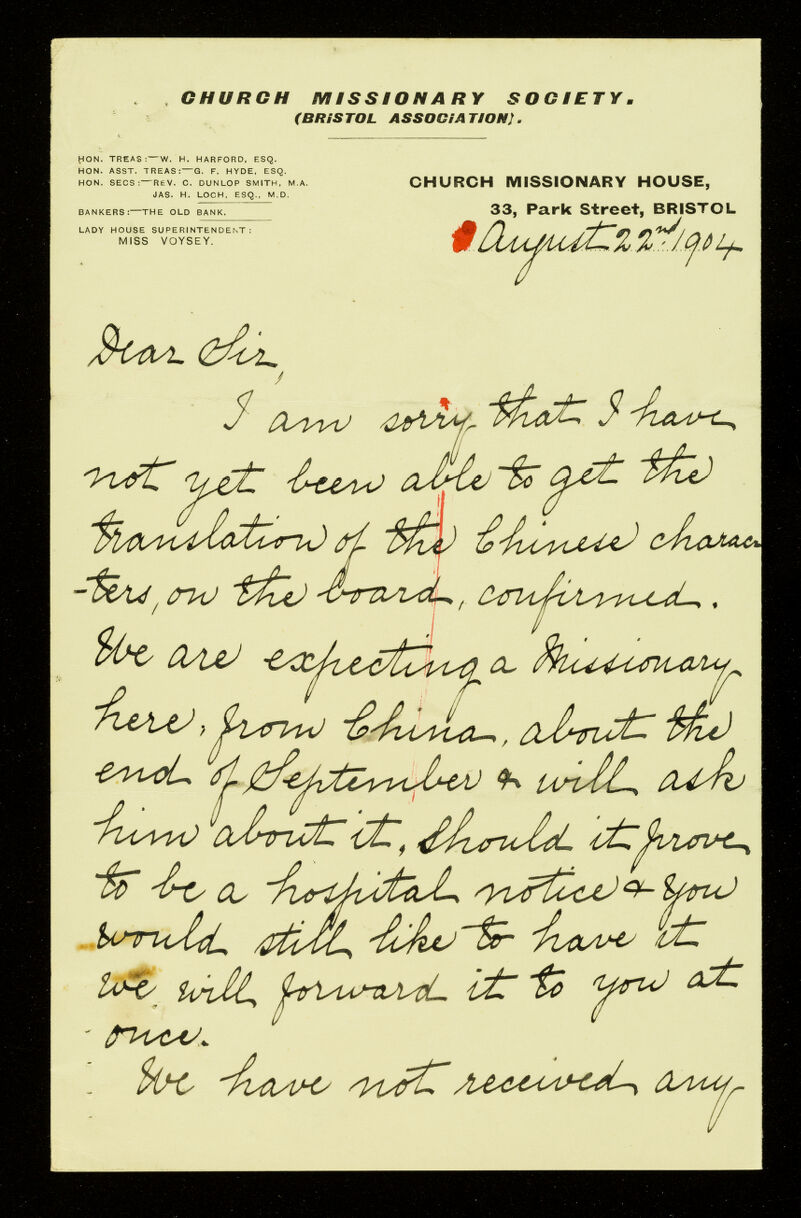 CHURCH MISSIONARY SOCIETY.
(BRISTOL ASSOCIATION).
HON. TREAS:—W. H. HARFORD, ESQ.
HON. ASST. TREAS:—G. F. HYDE, ESQ.
HON. SECS:—REV. C. DUNLOP SMITH, M.A.
JAS. H. LOCH, ESQ., M.D.
BANKERS:—THE OLD BANK.
LADY HOUSE SUPERINTENDENT:
MISS VOYSEY.
CHURCH MISSIONARY HOUSE,
33, Park Street, BRISTOL
August 22nd 1904
Dear Sir,
I am sorry that I have
not yet been able to get the
translation of the Chinese charac-
-ters, on the board, confirmed.
We are expecting a Missionary
here, from China, about the
end of September & will ask
him about it, should it prove
to be a hospital notice & you
would still like to have it
we will forward it to you at
once.
We have not received any